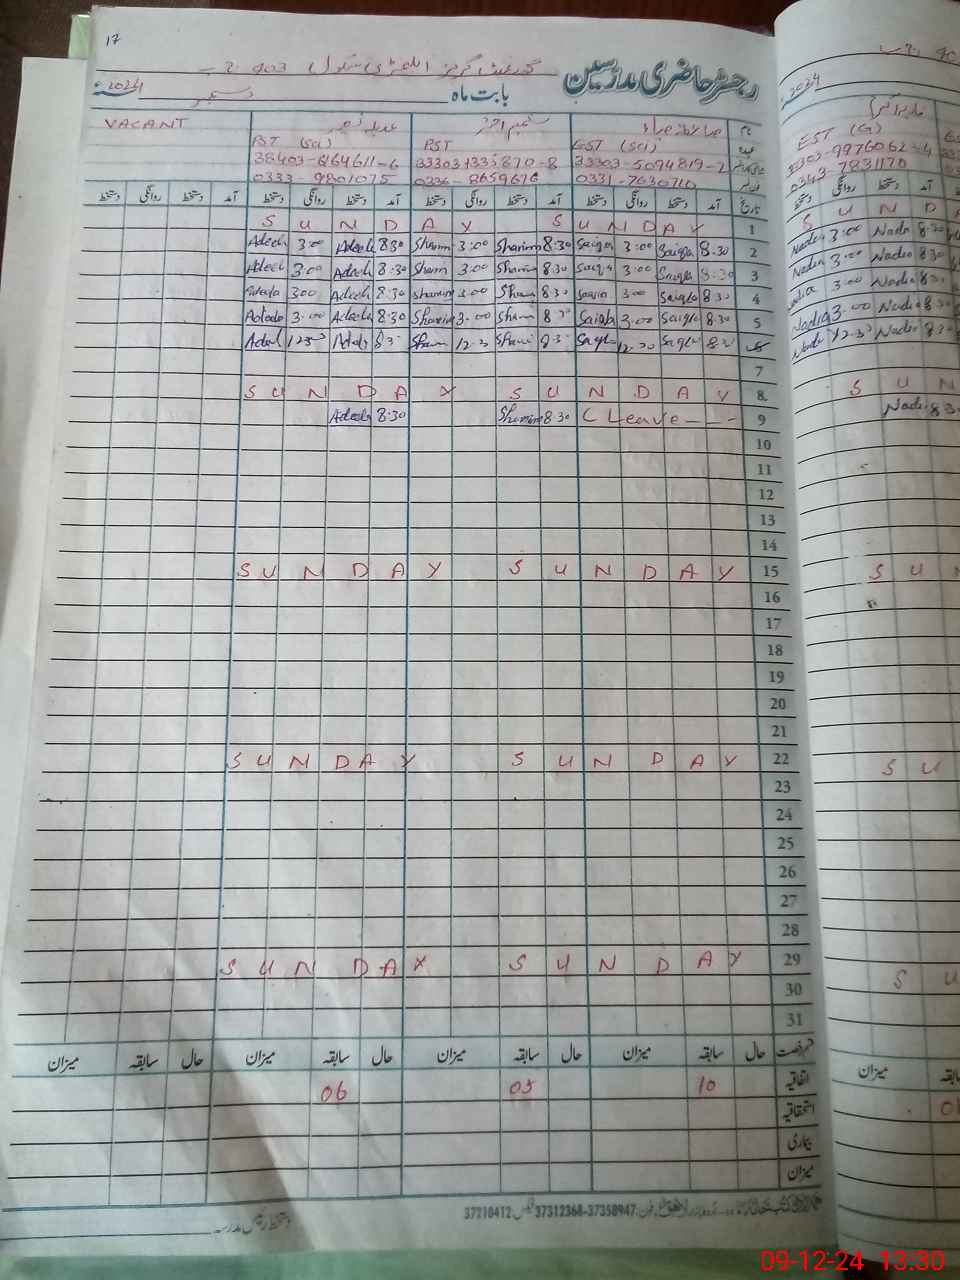 17
رجسٹر حاضری مدرسین گورنمنٹ گرلز ایلیمنٹری سکول 403 ج ب
بابت ماہ دسمبر 2024
نام صائقہ ضیاء شمیم اختر VACANT
EST (Sci) PST PST (Sci)
33303-5094819-2 33303 1333870-8 38403-6164611-6
0331-7630710 0336-8659676 0333-9801075
تاریخ آمد دستخط روانگی دستخط آمد دستخط روانگی دستخط آمد دستخط روانگی دستخط آمد دستخط روانگی دستخط
S U N D A Y S U N D A Y 1
Adeela 3:00 Adeela 8:30 Shamim 3:00 Shamim 8:30 Saiqa 3:00 Saiqa 8:30 2
Adeela 3:00 Adeela 8:30 Shamim 3:00 Shamim 8:30 Saiqa 3:00 Saiqa 8:30 3
Adeela 3:00 Adeela 8:30 Shamim 3:00 Shamim 8:30 Saiqa 3:00 Saiqa 8:30 4
Adeela 3:00 Adeela 8:30 Shamim 3:00 Shamim 8:30 Saiqa 3:00 Saiqa 8:30 5
12:30 12:30 12:30 8:30
7
S U N D A Y S U N D A Y 8
Adeela 8:30 Shamim 8:30 C Leave - - - 9
10
11
12
13
14
S U N D A Y S U N D A Y 15
16
17
18
19
20
21
S U N D A Y S U N D A Y 22
23
24
25
26
27
28
S U N D A Y S U N D A Y 29
30
31
قسم رخصت حال سابقہ میزان حال سابقہ میزان حال سابقہ میزان حال سابقہ میزان
اتفاقیہ 10 05 06
استحقاقیہ
بیماری
میزان
37210412 فیکس 37312368-37358947 فون
دستخط رئیس مدرسہ
2024
EST (G)
33303-9976062-4
0343-7831170
دستخط روانگی دستخط آمد
S U N D
Nadia 3:00 Nadia 8:30
Nadia 3:00 Nadia 8:30
Nadia 3:00 Nadia 8:30
Nadia 3:00 Nadia 8:30
Nadia 12:30 Nadia
S U N
Nadia 8:30
S U N
S U
S U
میزان سابقہ
09-12-24 13:30